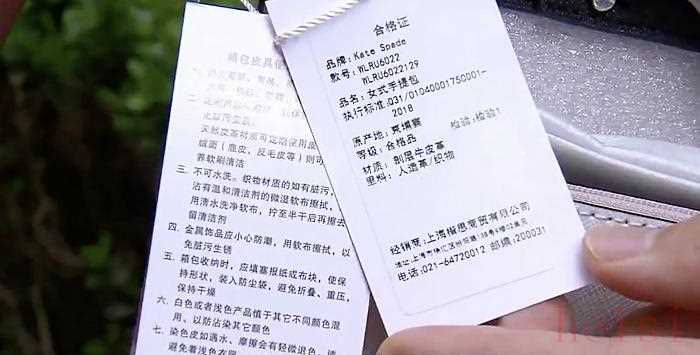 箱包皮具
天然皮革材质可定期使用皮
绒面（鹿皮，反毛皮等）则可
养软刷清洁
三、不可水洗。织物材质的如有脏污，
沾有温和清洁剂的微湿软布擦拭，
用清水洗净软布，拧至半干后再擦去
留清洁剂
四、金属饰品应小心防潮，用软布擦拭，以
免脏污生锈
五、箱包收纳时，应填塞报纸或布块，使保
持形状，装入防尘袋，避免折叠、重压，
保持干燥
六、白色或者浅色产品慎于其它不同颜色混
用、以防沾染其它颜色
七、染色皮如遇水、摩擦会有轻微退色，请
避免着浅色衣服
合格证
品牌:Kate Spade
款号:WLRU6022
WLRU6022129
品名:女式手提包
执行标准:Q31/01040001750001-
2018
原产地:柬埔寨
检验:检验1
等级:合格品
材质: 剖层牛皮革
里料: 人造革/织物
经销商:上海 商贸有限公司
电话:021-64720012 邮编:200031